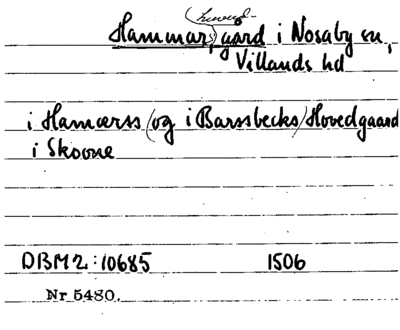 hoved-
Hammar, gård i Nosaby sn,
Villands hd
i Hamærss (og i Barssbecks) Hovedgaard
i Skoone
DBM2:10685 1506
Nr 5480.